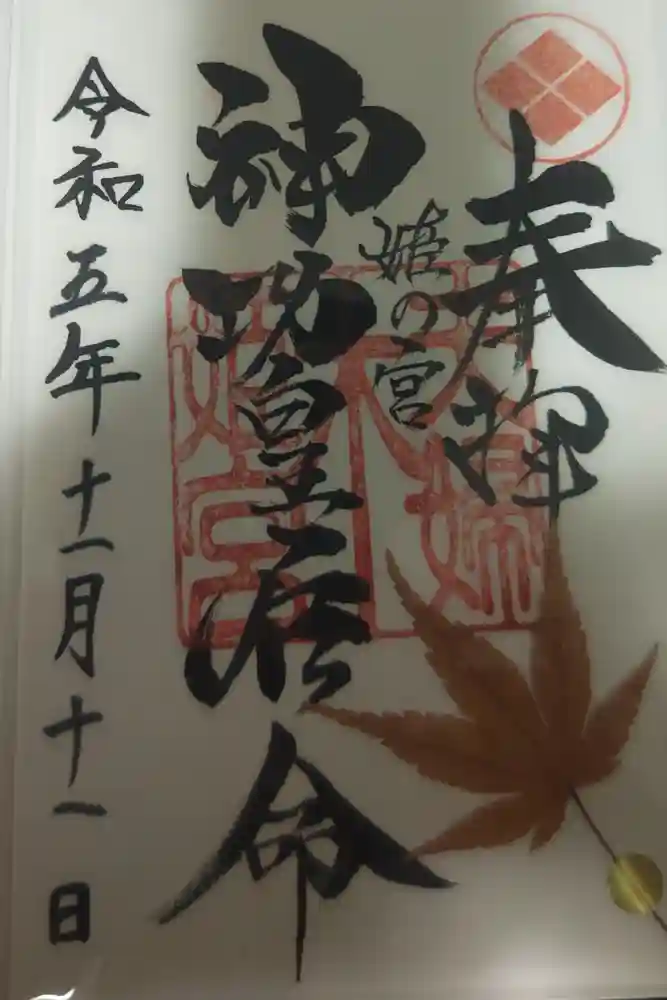 奉拝
姫の宮
神功皇后命
令和五年十一月十一日